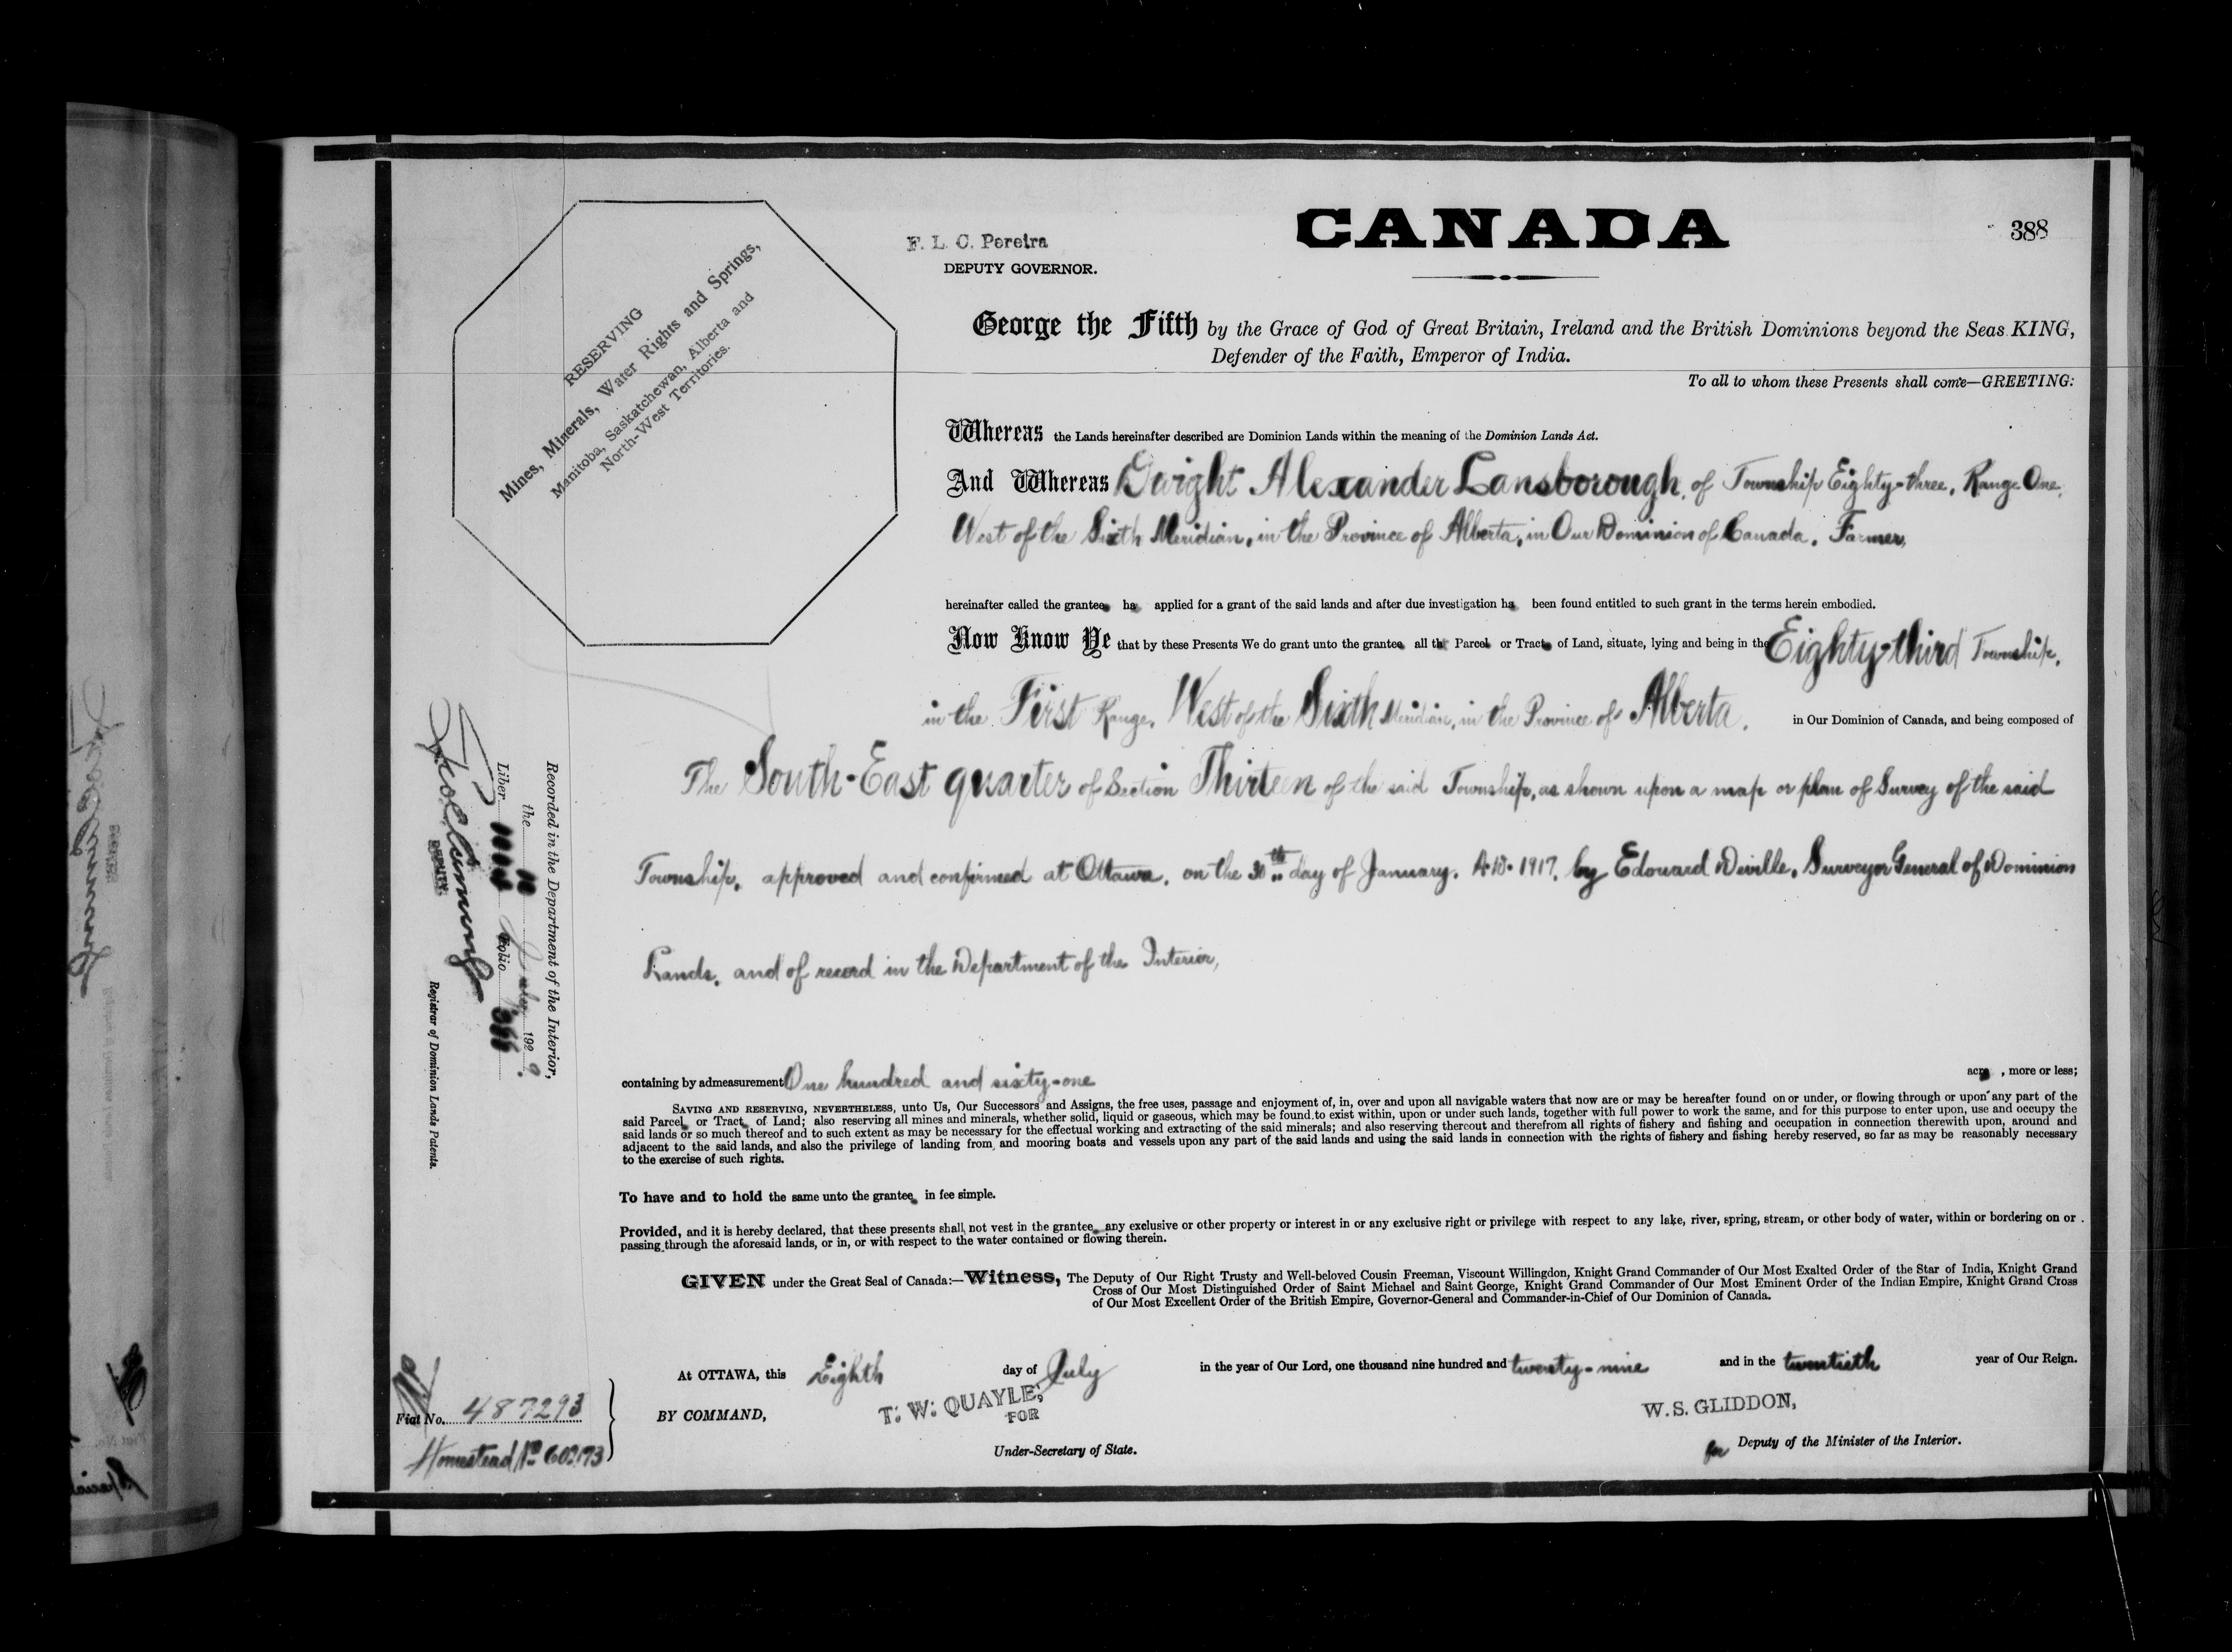 CANADA
388
F. L. C. Pereira
DEPUTY GOVERNOR.
RESERVING
Mines, Minerals, Water Rights and Springs,
Manitoba, Saskatchewan, Alberta and
North-West Territories.
George the Fifth by the Grace of God of Great Britain, Ireland and the British Dominions beyond the Seas KING,
Defender of the Faith, Emperor of India.
To all to whom these Presents shall come—GREETING:
Whereas the Lands hereinafter described are Dominion Lands within the meaning of the Dominion Lands Act.
And Whereas Dwight Alexander Lansborough, of Township Eighty-three, Range One,
West of the Sixth Meridian, in the Province of Alberta, in Our Dominion of Canada, Farmer,
hereinafter called the grantee ha applied for a grant of the said lands and after due investigation ha been found entitled to such grant in the terms herein embodied.
Now Know Ye that by these Presents We do grant unto the grantee all th Parcel or Tract of Land, situate, lying and being in the Eighty-third Township,
in the First Range, West of the Sixth Meridian, in the Province of Alberta, in Our Dominion of Canada, and being composed of
The South-East quarter of Section Thirteen of the said Township, as shown upon a map or plan of Survey of the said
Township, approved and confirmed at Ottawa, on the 30th day of January, A.D. 1917, by Edouard Deville, Surveyor General of Dominion
Lands, and of record in the Department of the Interior,
containing by admeasurement One hundred and sixty-one acre , more or less;
SAVING AND RESERVING, NEVERTHELESS, unto Us, Our Successors and Assigns, the free uses, passage and enjoyment of, in, over and upon all navigable waters that now are or may be hereafter found on or under, or flowing through or upon any part of the
said Parcel or Tract of Land; also reserving all mines and minerals, whether solid, liquid or gaseous, which may be found to exist within, upon or under such lands, together with full power to work the same, and for this purpose to enter upon, use and occupy the
said lands or so much thereof and to such extent as may be necessary for the effectual working and extracting of the said minerals; and also reserving thereout and therefrom all rights of fishery and fishing and occupation in connection therewith upon, around and
adjacent to the said lands, and also the privilege of landing from and mooring boats and vessels upon any part of the said lands and using the said lands in connection with the rights of fishery and fishing hereby reserved, so far as may be reasonably necessary
to the exercise of such rights.
To have and to hold the same unto the grantee in fee simple.
Provided, and it is hereby declared, that these presents shall not vest in the grantee any exclusive or other property or interest in or any exclusive right or privilege with respect to any lake, river, spring, stream, or other body of water, within or bordering on or
passing through the aforesaid lands, or in, or with respect to the water contained or flowing therein.
GIVEN under the Great Seal of Canada:—Witness, The Deputy of Our Right Trusty and Well-beloved Cousin Freeman, Viscount Willingdon, Knight Grand Commander of Our Most Exalted Order of the Star of India, Knight Grand
Cross of Our Most Distinguished Order of Saint Michael and Saint George, Knight Grand Commander of Our Most Eminent Order of the Indian Empire, Knight Grand Cross
of Our Most Excellent Order of the British Empire, Governor-General and Commander-in-Chief of Our Dominion of Canada.
At OTTAWA, this Eighth day of July in the year of Our Lord, one thousand nine hundred and twenty-nine and in the twentieth year of Our Reign.
BY COMMAND,
T. W. QUAYLE,
FOR
Under-Secretary of State.
W. S. GLIDDON,
for Deputy of the Minister of the Interior.
Fiat No. 487293
Homestead No
Recorded in the Department of the Interior,
the 10 July 1929.
Liber Folio
DEPUTY
Registrar of Dominion Lands Patents.